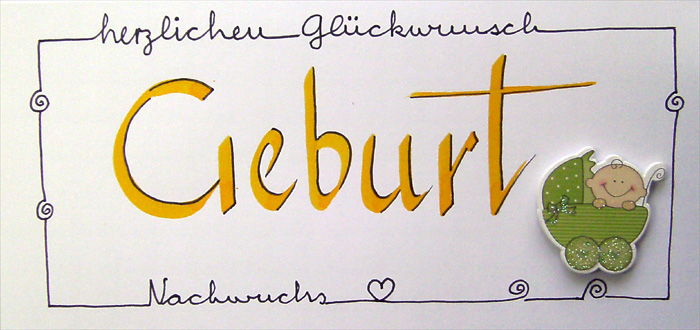 herzlichen Glückwunsch
Geburt
Nachwuchs